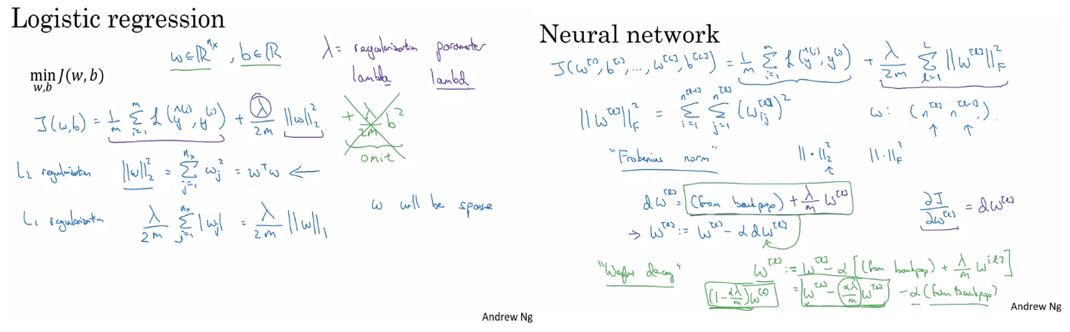 Logistic regression
w∈ℝ^{n_x}, b∈ℝ
λ = regularization parameter
lambda lambd
min_{w,b} J(w, b)
J(w,b) = 1/m Σ_{i=1}^{m} L(ŷ^{(i)}, y^{(i)}) + λ/2m ||w||_2^2 + λ/2m b^2
omit
L_2 regularization ||w||_2^2 = Σ_{j=1}^{n_x} w_j^2 = w^T w ←
L_1 regularization λ/2m Σ_{j=1}^{n_x} |w_j| = λ/2m ||w||_1
w will be sparse
Andrew Ng
Neural network
J(w^{[1]}, b^{[1]}, ..., w^{[L]}, b^{[L]}) = 1/m Σ_{i=1}^{m} L(ŷ^{(i)}, y^{(i)}) + λ/2m Σ_{l=1}^{L} ||w^{[l]}||_F^2
||w^{[l]}||_F^2 = Σ_{i=1}^{n^{[l-1]}} Σ_{j=1}^{n^{[l]}} (w_{ij}^{[l]})^2 w: (n^{[l]}, n^{[l-1]}).
"Frobenius norm" ||·||_2^2 ||·||_F^2
dw^{[l]} = (from backprop) + λ/m w^{[l]}
∂J/∂w^{[l]} = dw^{[l]}
→ w^{[l]} := w^{[l]} - α dw^{[l]}
"Weight decay" w^{[l]} := w^{[l]} - α[(from backprop) + λ/m w^{[l]}]
(1 - αλ/m) w^{[l]} = w^{[l]} - αλ/m w^{[l]} - α(from backprop)
Andrew Ng